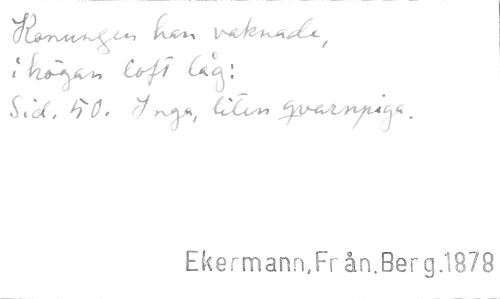 Konungen han vaknade,
i högan loft låg:
Sid. 50. Inga, liten qvarnpiga.
Ekermann, Från. Berg. 1878